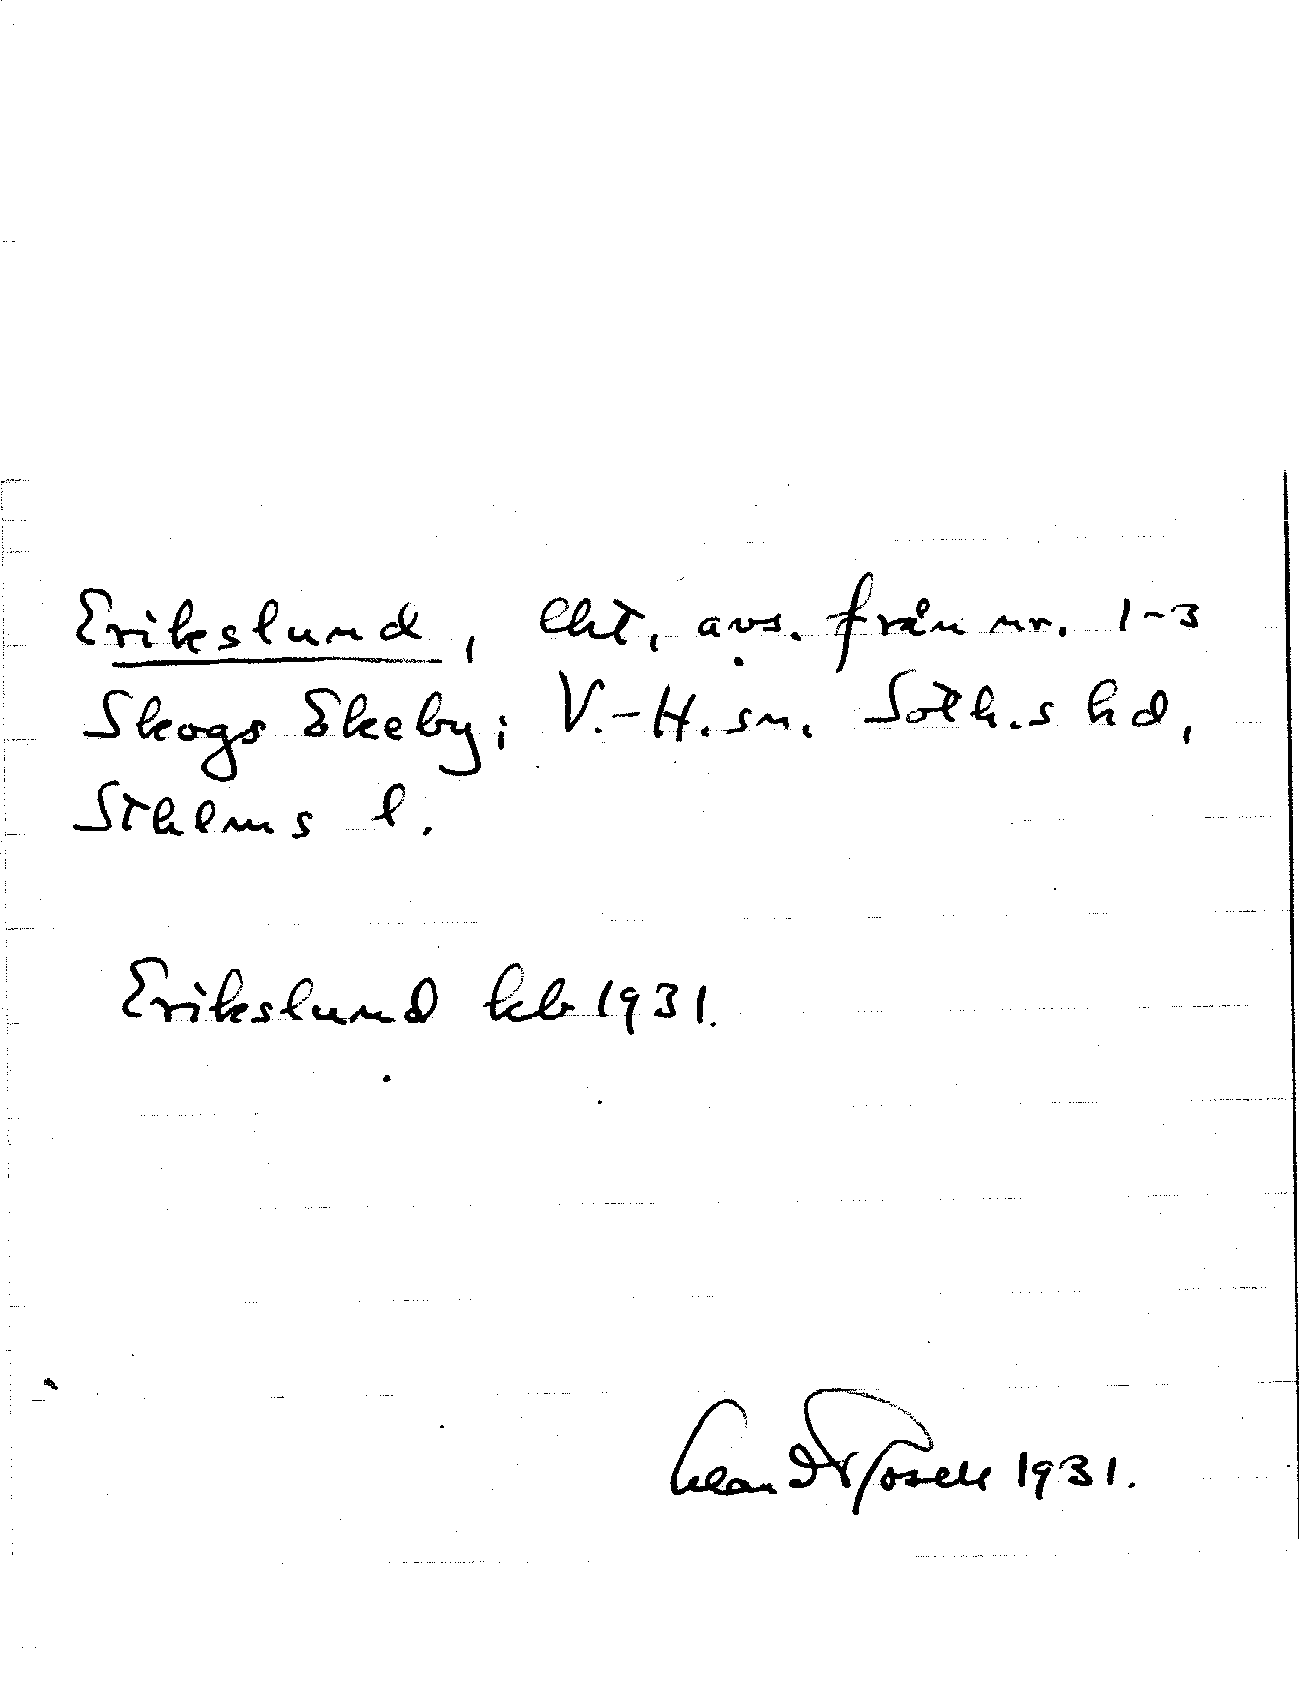 Erikslund, lht, avs. från nr. 1-3
Skogs Ekeby; V.-H. sn. Soth.s hd,
Sthlms l.
Erikslund kb 1931.
1931.